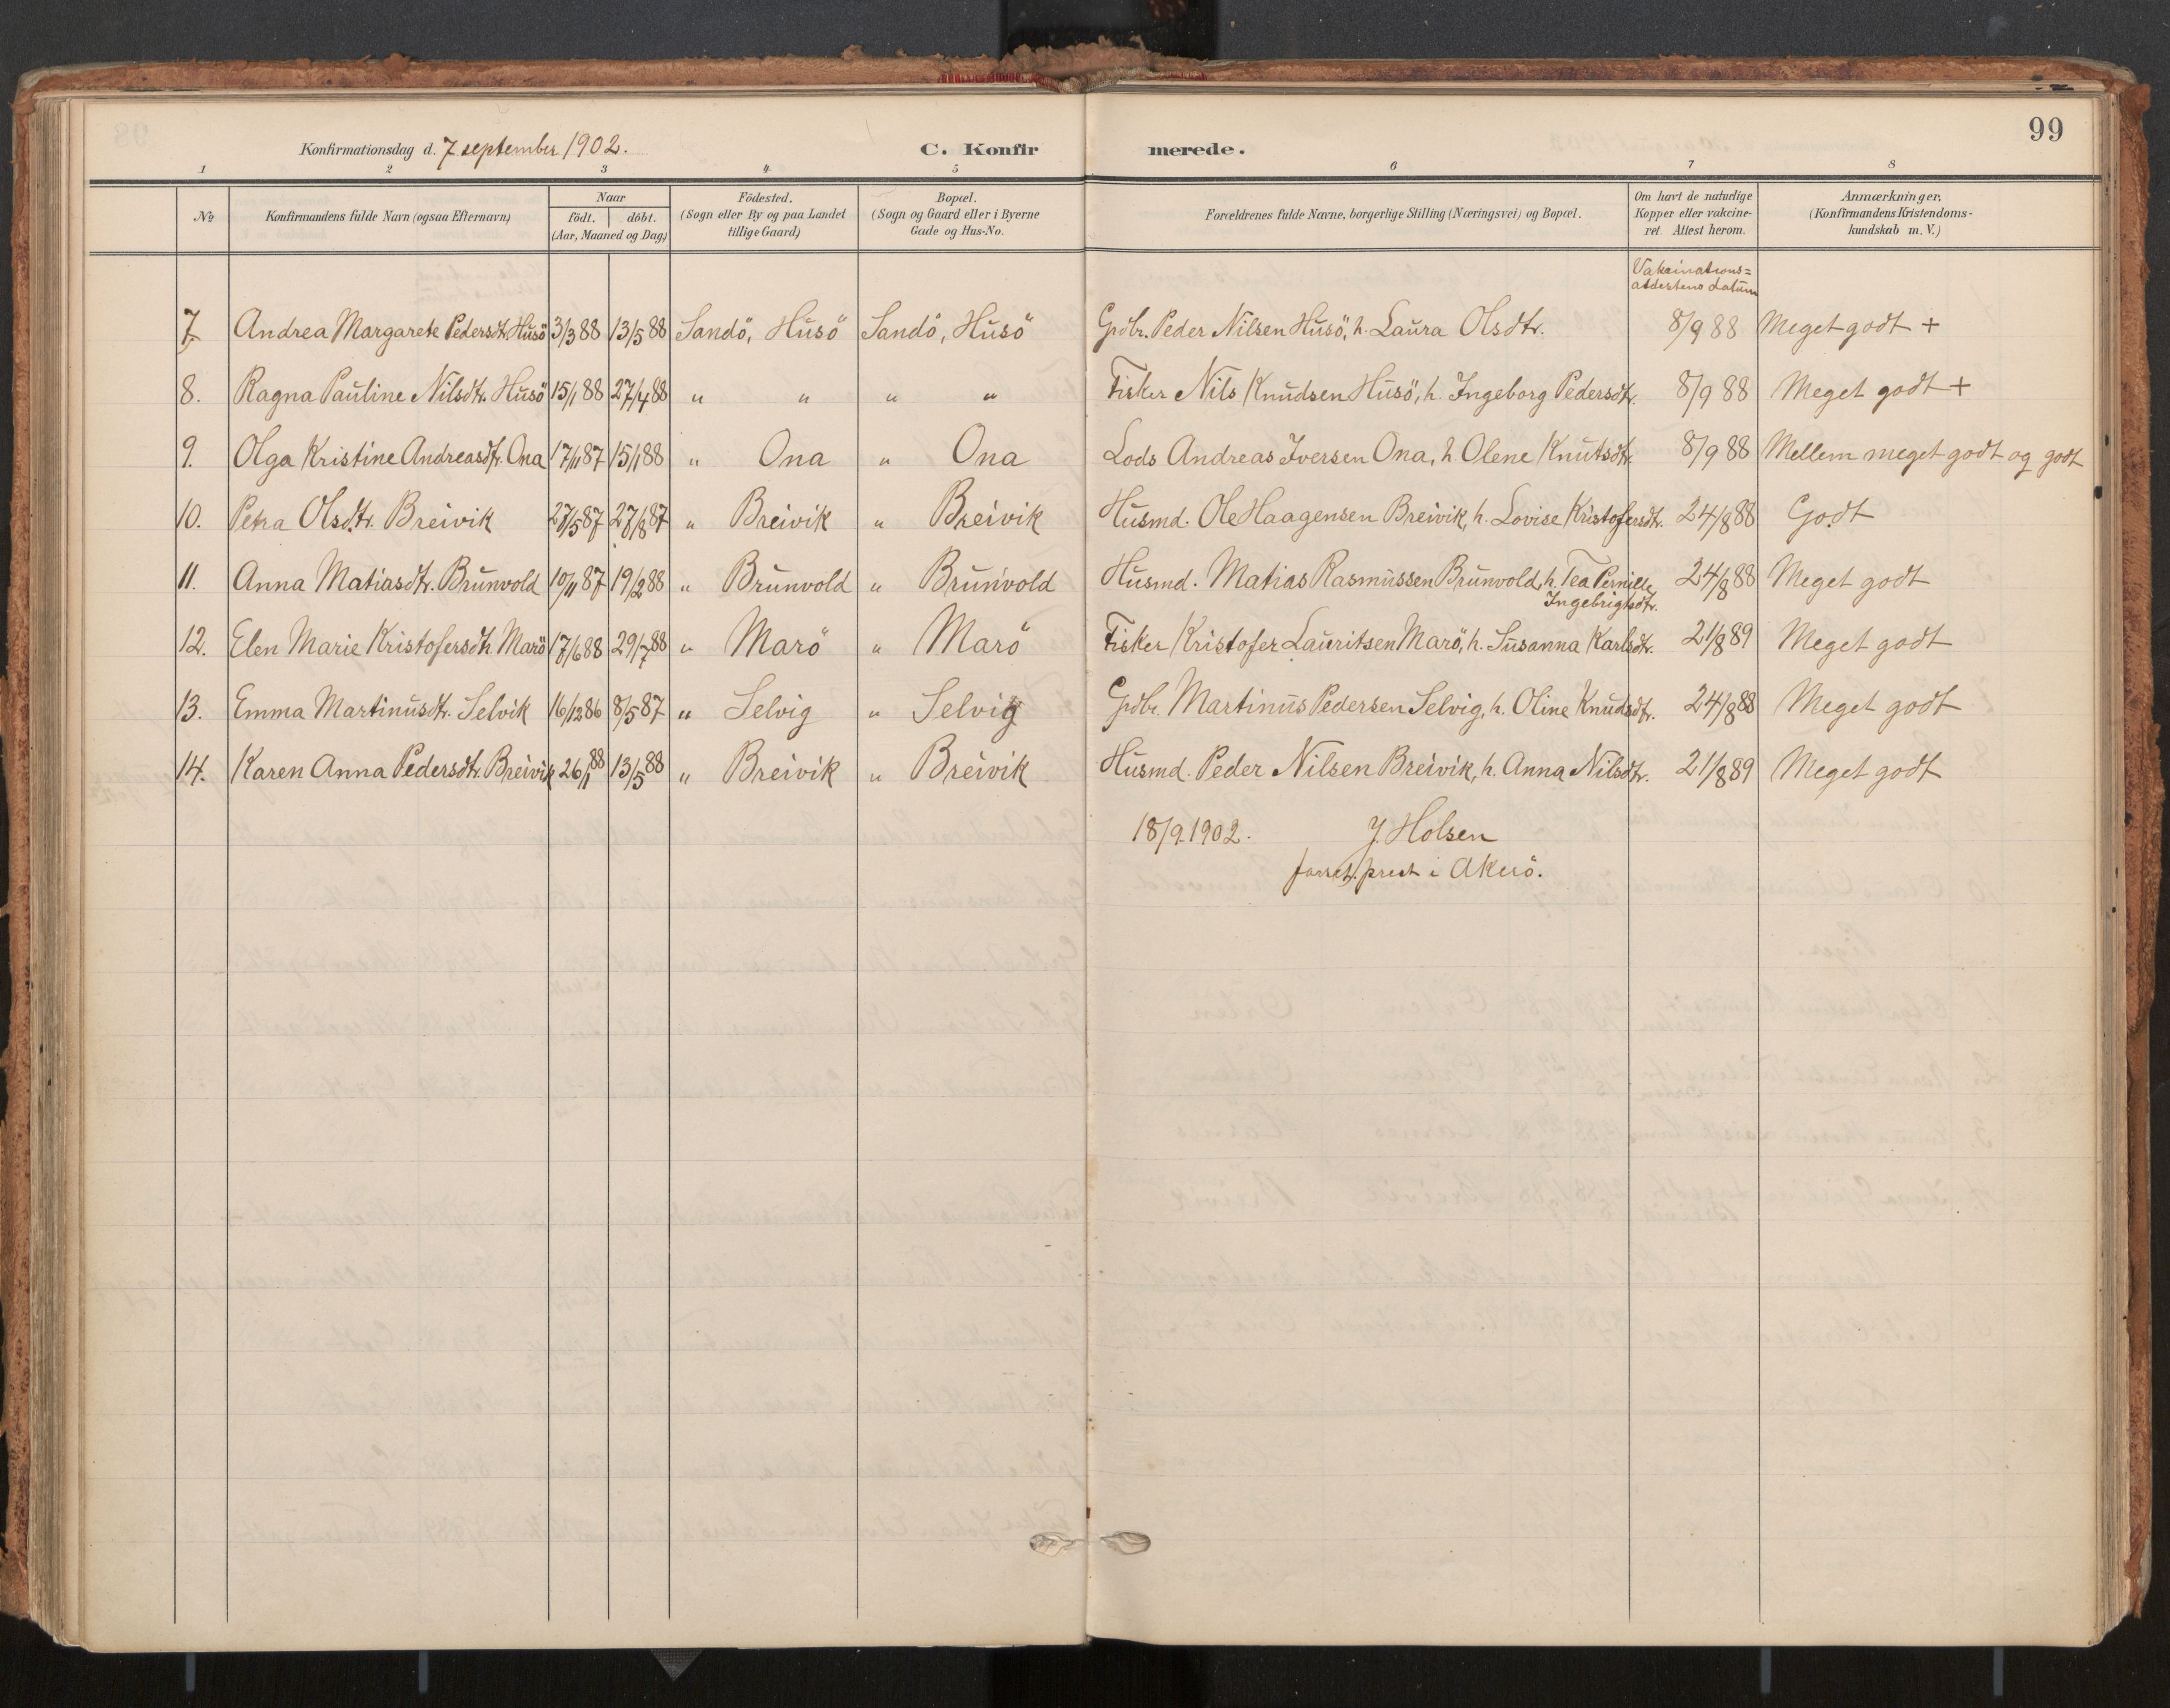 99
Konfirmationsdag d. 7 september 1902. C. Konfirmerede.
1 2 3 4 5 6 7 8
No Konfirmandens fulde Navn (ogsaa Efternavn) Naar födt. döbt. (Aar, Maaned og Dag) Födested. (Sogn eller By og paa Landet tillige Gaard) Bopæl. (Sogn og Gaard eller i Byerne Gade og Hus-No. Forældrenes fulde Navne, borgerlige Stilling (Næringsvei) og Bopæl. Om havt de naturlige Kopper eller vakcineret. Attest herom. Anmærkninger. (Konfirmandens Kristendomskundskab m. V.)
Vakcinations=
attestens datum
7. Andrea Margarete Pedersdtr. Husö 3/3 88 13/5 88 Sandö, Husö Sandö, Husö Grdbr. Peder Nilsen Husö, h. Laura Olsdtr. 8/9 88 Meget godt +
8. Ragna Pauline Nilsdtr. Husö 15/1 88 27/4 88 " " " " Fisker Nils Knudsen Husö, h. Ingeborg Pedersdtr. 8/9 88 Meget godt +
9. Olga Kristine Andreasdtr. Ona 17/11 87 15/1 88 " Ona " Ona Lods Andreas Iversen Ona, h. Olene Knutsdtr. 8/9 88 Mellem meget godt og godt
10. Petra Olsdtr. Breivik 27/5 87 27/8 87 " Breivik " Breivik Husmd. Ole Haagensen Breivik, h. Lovise Kristofersdtr. 24/8 88 Godt
11. Anna Matiasdtr. Brunvold 10/11 87 19/2 88 " Brunvold " Brunvold Husmd. Matias Rasmussen Brunvold, h. Tea Pernille 24/8 88 Meget godt
Ingebrigtsdtr.
12. Elen Marie Kristofersdtr. Marö 17/6 88 29/7 88 " Marö " Marö Fisker Kristofer Lauritsen Marö, h. Susanna Karlsdtr. 21/8 89 Meget godt
13. Emma Martinusdtr. Selvik 16/12 86 8/5 87 " Selvig " Selvig Grdbr. Martinus Pedersen Selvig, h. Oline Knudsdtr. 24/8 88 Meget godt
14. Karen Anna Pedersdtr. Breivik 26/1 88 13/5 88 " Breivik " Breivik Husmd. Peder Nilsen Breivik, h. Anna Nilsdtr. 21/8 89 Meget godt
18/9 1902. J. Holsen
forret. prest i Akerö.